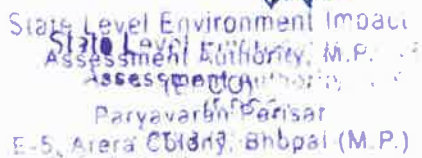 State Level Environment Impact
Assessment Authority, M.P.
Paryavaran Parisar
E-5, Arera Colony, Bhopal (M.P.)